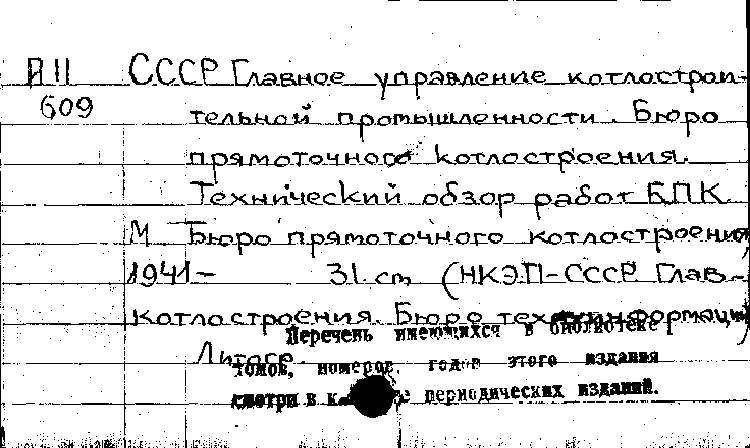 П11 СССР Главное управление котлострои-
609 тельной промышленности. Бюро
прямоточного котлостроения.
Технический обзор работ БПК
М Бюро прямоточного котлостроения,
1941- 31 cm (НКЭП-СССР Глав-
котлостроения. Бюро техинформации)
Литогр.
Перечень имеющихся в библиотеке
томов, номеров, годов этого издания
смотри в периодических изданий.